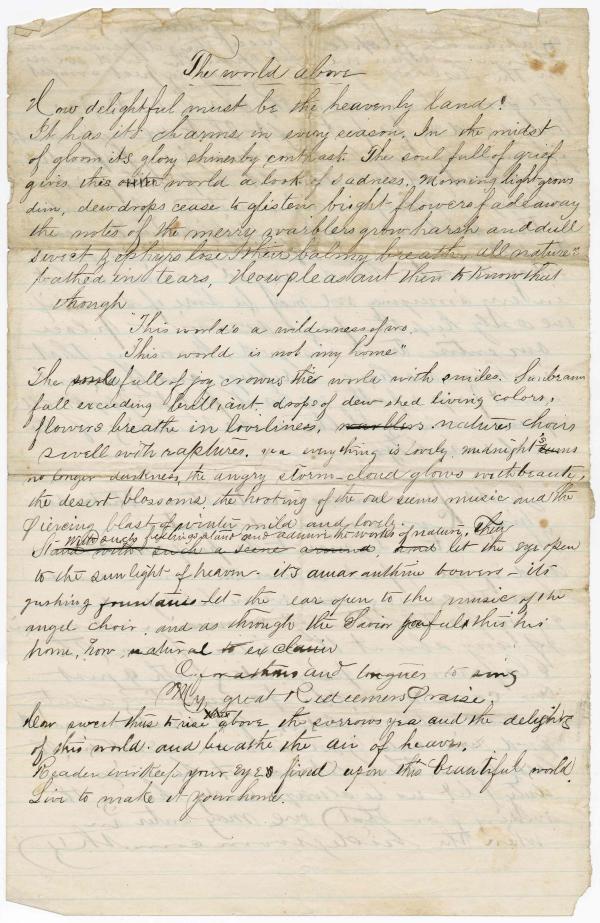 The world above
How delightful must be the heavenly Land!
It has its charms in every season. In the midst
of gloom its glory shines by contrast. The soul full of grief
gives this world a look of sadness, Morning light grows
dim, dewdrops cease to glisten bright flowers fade away
the notes of the merry warblers grow harsh and dull
sweet zephyrs lose their balmy breath, all nature is
bathed in tears, How pleasant then to know that
though
"This world's a wilderness of wo,
This world is not my home"
The soul full of joy crowns this world with smiles. Sunbeams
fall exceeding brilliant. drops of dew shed living colors,
flowers breathe in loveliness, warblers natures choirs
swell with raptures. yea everything is lovely, midnight is
no longer darkness, the angry storm-cloud glows with beauty,
the desert blossoms the hooting of the owl seems music and the
piercing blast of winter mild and lovely.
With such feelings stand and admire the works of nature, They
Stand with such a scene around, and let the eye open
to the sunlight of heaven - its amaranthine bowers - its
gushing fountains let the ear open to the music of the
angel choir. and as through the Savior feels this his
home, how natural to exclaim
O for and tongues to sing
My great Redeemers Praise,
How sweet thus to rise above the sorrows yea and the delights
of this world. and breathe the air of heaven.
Reader keep your eyes fixed upon this beautiful world.
Live to make it your home.